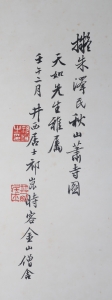 擬朱澤民秋山蕭寺圖
天如先生雅屬
壬午二月井西居士祁崑時客金山僧舍